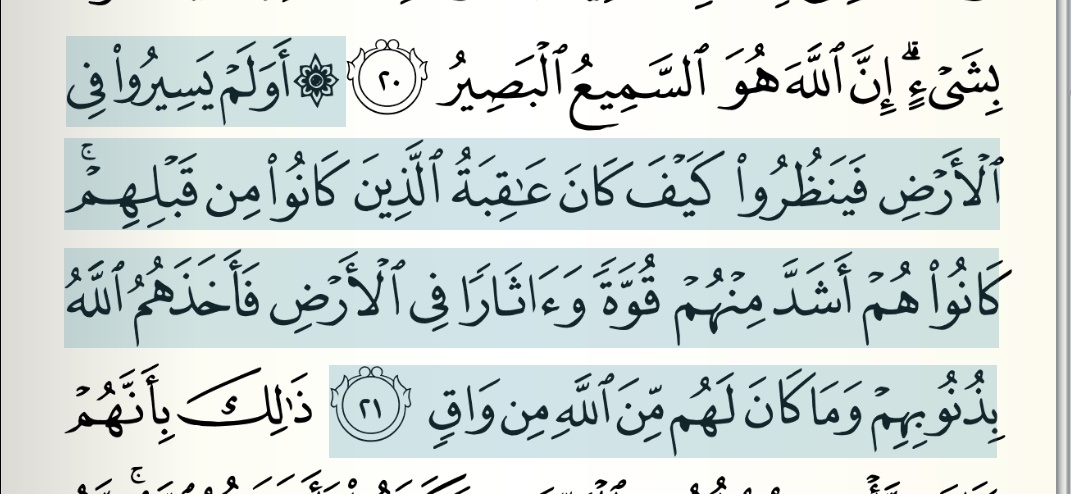 بِشَىۡءٍۗ إِنَّ ٱللَّهَ هُوَ ٱلسَّمِيعُ ٱلۡبَصِيرُ ٢٠ ۞ أَوَلَمۡ يَسِيرُواْ فِي
ٱلۡأَرۡضِ فَيَنظُرُواْ كَيۡفَ كَانَ عَٰقِبَةُ ٱلَّذِينَ كَانُواْ مِن قَبۡلِهِمۡۚ
كَانُواْ هُمۡ أَشَدَّ مِنۡهُمۡ قُوَّةٗ وَءَاثَارٗا فِي ٱلۡأَرۡضِ فَأَخَذَهُمُ ٱللَّهُ
بِذُنُوبِهِمۡ وَمَا كَانَ لَهُم مِّنَ ٱللَّهِ مِن وَاقٖ ٢١ ذَٰلِكَ بِأَنَّهُمۡ